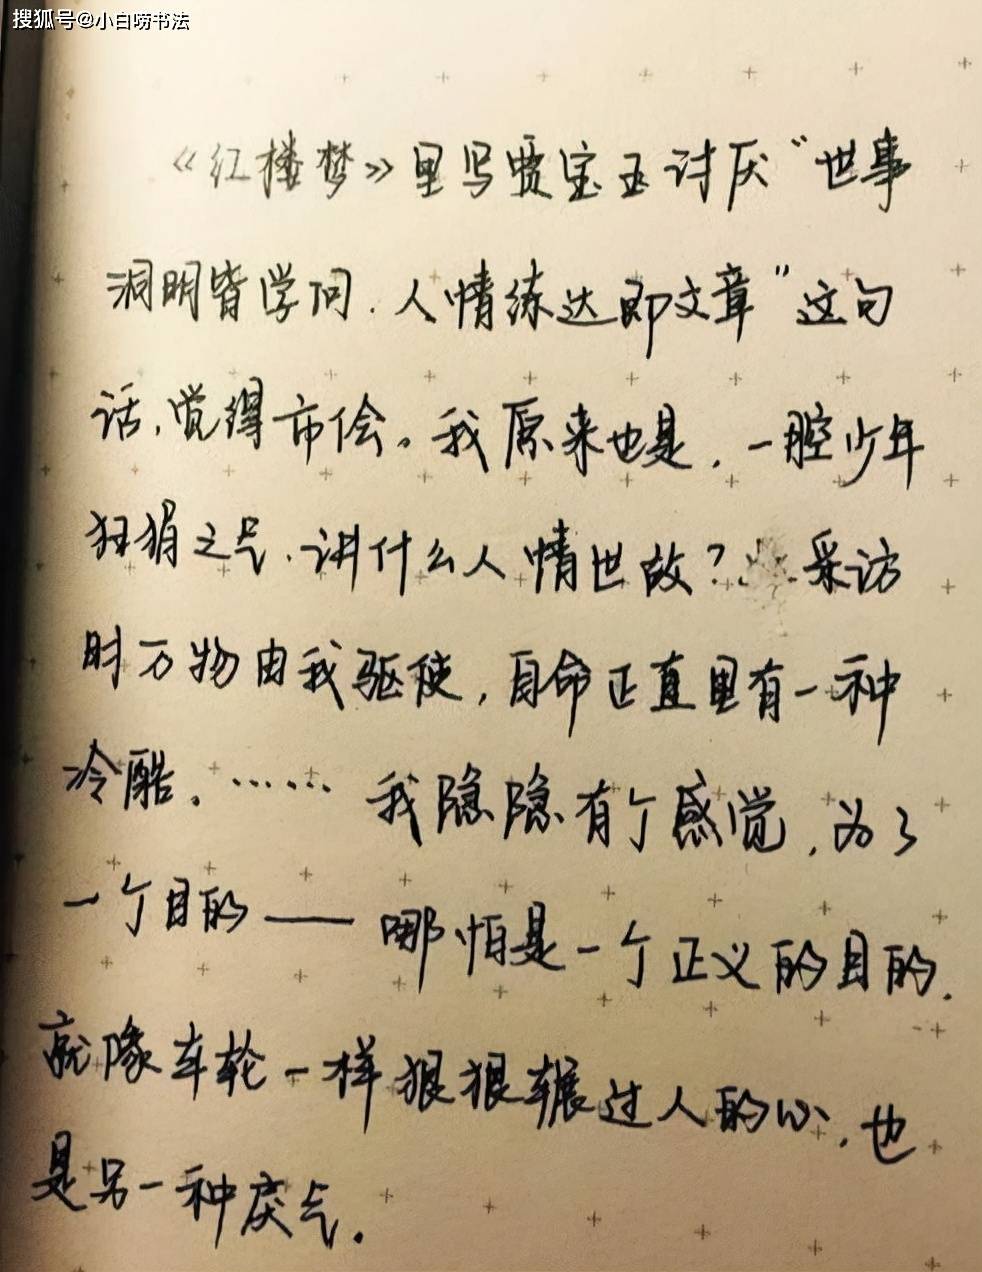 搜狐号@小白唠书法
《红楼梦》里写贾宝玉讨厌“世事
洞明皆学问.人情练达即文章”这句
话,觉得市侩。我原来也是,一腔少年
狂狷之气.讲什么人情世故?采访
时万物由我驱使,自命正直里有一种
冷酷。……我隐隐有个感觉,为了
一个目的——哪怕是一个正义的目的.
就像车轮一样狠狠辗过人的心.也
是另一种戾气.